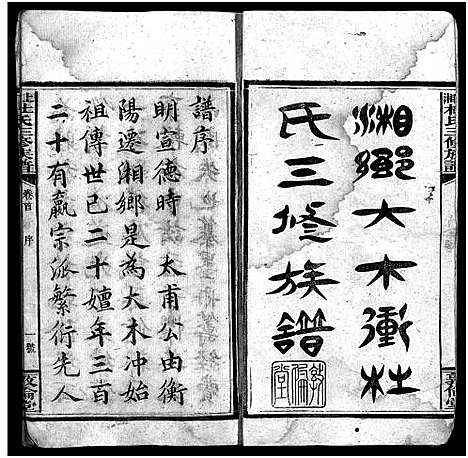 湘鄉大木衝杜
氏三修族譜
敦倫堂
譜序
明宣德時 太甫公由衡
陽遷湘鄉是為大木冲始
祖傳世已二十嬗年三百
二十有贏宗派繁衍先人
杜氏三修族譜
卷首
序
一號
敦倫堂